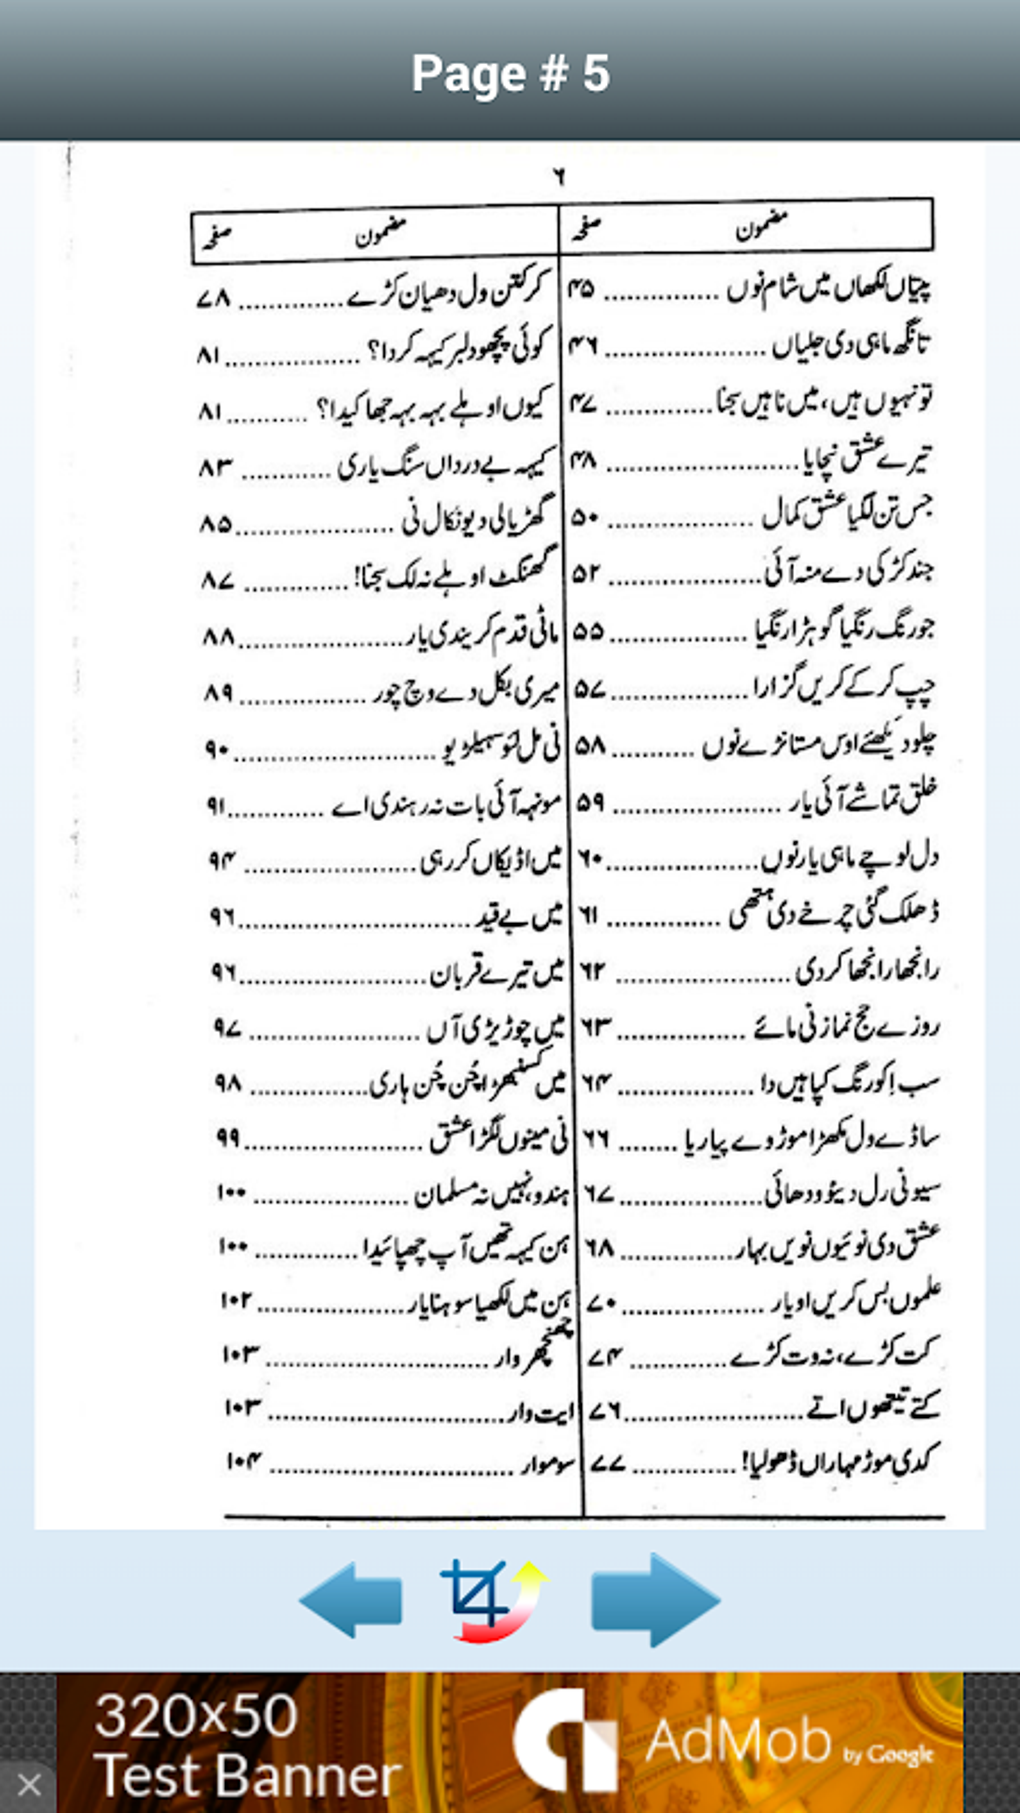 Page # 5
۶
مضمون صفحہ
پیتاں لکھاں میں شام نوں ............... ۴۵
تانگھ ماہی دی جلیاں ..................... ۴۶
تو نہیوں ہیں، میں ناہیں سجنا .............. ۴۷
تیرے عشق نچایا ......................... ۴۸
جس تن لگیا عشق کمال ................... ۵۰
جند کڑکی دے منہ آئی .................... ۵۲
جو رنگ رنگیا گوہڑا رنگیا .................. ۵۵
چپ کر کے کریں گزارا .................. ۵۷
چلو دیکھئے اوس مستانڑے نوں ........... ۵۸
خلق تماشے آئی یار ...................... ۵۹
دل لوچے ماہی یار نوں .................... ۶۰
ڈھلک گئی چرخے دی ہتھی ............... ۶۱
رانجھا رانجھا کردی ....................... ۶۲
روزے حج نماز نی مائے ................. ۶۳
سب اِکو رنگ کپاہیں دا .................. ۶۴
ساڈے ول مکھڑا موڑ وے پیاریا ........ ۶۶
سیونی رل دیئو ودھائی ................... ۶۷
عشق دی نوئیوں نویں بہار ............... ۶۸
علموں بس کریں او یار ................... ۷۰
کت کڑے، نہ وت کڑے ............. ۷۴
کتے تیتھوں اتے ........................ ۷۶
کدی موڑ مہاراں ڈھولیا! .............. ۷۷
مضمون صفحہ
کر کتن ول دھیان کڑے .............. ۷۸
کوئی پچھو دلبر کیہہ کردا؟ .................. ۸۱
کیوں اوہلے بہہ بہہ جھاکیدا؟ ........... ۸۱
کیہہ بے درداں سنگ یاری ............ ۸۳
گھڑیالی دیو نکال نی ..................... ۸۵
گھنگٹ اوہلے نہ لک سجنا! .............. ۸۷
ماٹی قدم کریندی یار ...................... ۸۸
میری بکل دے وچ چور ................. ۸۹
نی مل لئو سہیلڑیو .......................... ۹۰
مونہہ آئی بات نہ رہندی اے ............. ۹۱
میں اڈیکاں کر رہی ....................... ۹۴
میں بے قید ............................... ۹۶
میں تیرے قربان ......................... ۹۶
میں چوڑیڑی آں ....................... ۹۷
میں کسنبھڑا چُن چُن ہاری ................ ۹۸
نی مینوں لگڑا عشق ....................... ۹۹
ہندو، نہیں نہ مسلمان .................... ۱۰۰
ہن کیہہ تھیں آپ چھپائیدا .............. ۱۰۰
ہن میں لکھیا سوہنا یار .................... ۱۰۲
چھنچھر وار ............................. ۱۰۳
ایت وار ............................... ۱۰۳
سوموار ................................ ۱۰۴
320x50
Test Banner
AdMob by Google